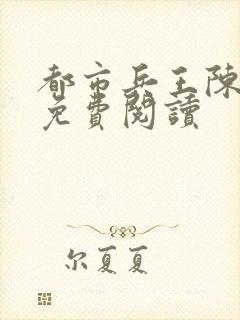 都市兵王陳
免費閱讀
尔夏夏